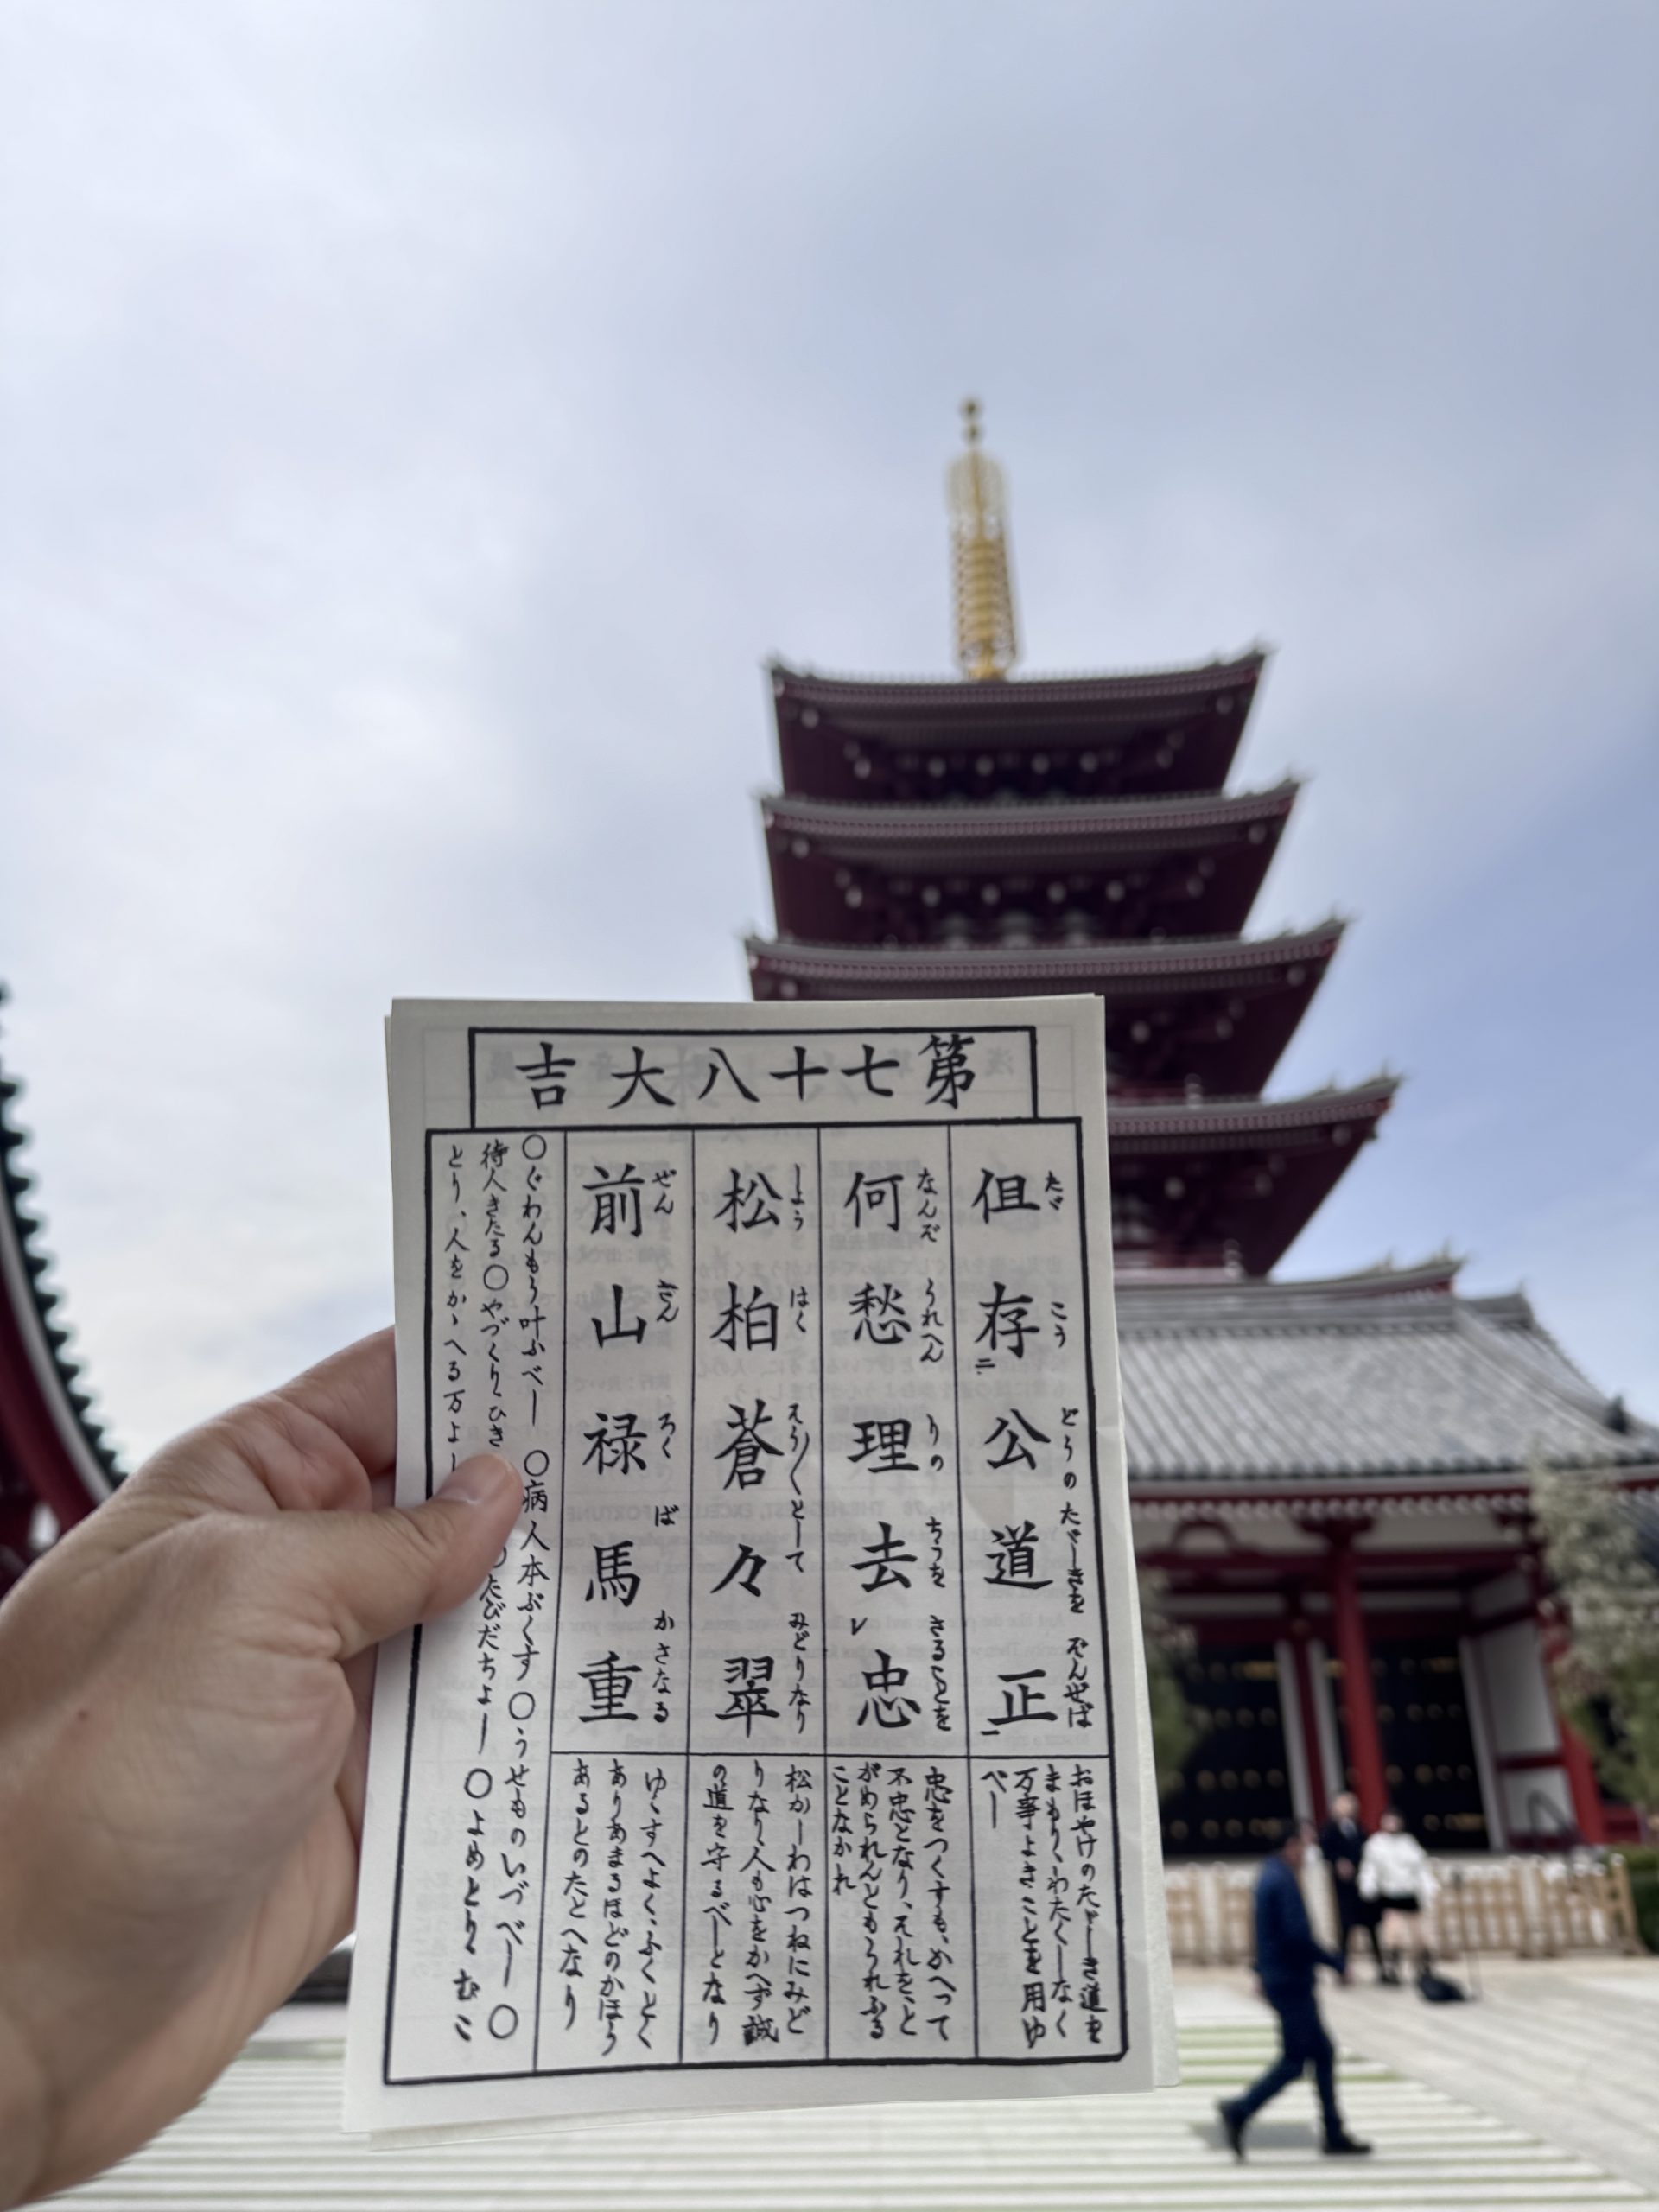 第七十八大吉
但存公道正
たゞ こう どうの たゞしきを ぞんぜば
おほやけのたゞしき道を
まもり、わたくしなく
万事よきことを用ゆ
べし
何愁理去忠
なんぞ うれへん りの ちうを さることを
忠をつくすも、かへつて
不忠となり、それを、と
がめられんともうれふる
ことなかれ
松柏蒼々翠
しよう はく そう／＼として みどりなり
松かしわはつねにみど
りなり、人も心をかへず誠
の道を守るべしとなり
前山禄馬重
ぜん さん ろく ば かさなる
ゆくすへよく、ふくとく
ありあまるほどのかほう
あるとのたとへなり
〇ぐわんもう叶ふべし 〇病人本ぶくす〇うせものいづべし〇
待人きたる〇やづくり、ひき たびだちよし〇よめとり、むこ
とり、人をかゝへる万よし